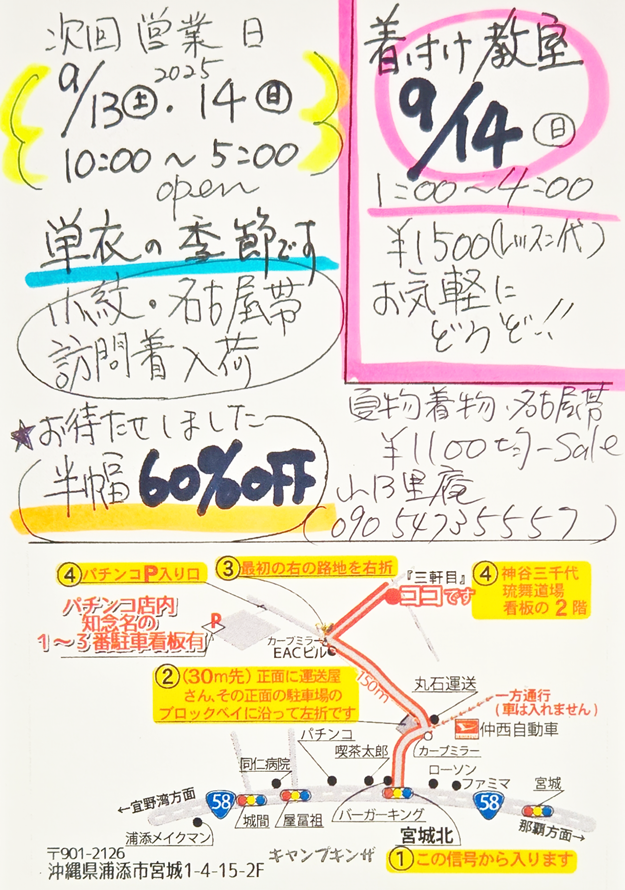 次回 営業 日
2025
9/13㊏・14㊐
10:00 〜 5:00
open
単衣の季節です
小紋・名古屋帯
訪問着入荷
★お待たせしました
半幅 60%OFF
着付け教室
9/14㊐
1:00〜4:00
¥1500(レッスン代)
お気軽に
どうぞ!!
夏物着物、名古屋帯
¥1100均-Sale
(090 5473 5557)
④パチンコP入り口
③最初の右の路地を右折
『三軒目』
ココです
④神谷三千代
琉舞道場
看板の2階
パチンコ店内
知念名の
1〜3番駐車看板有
P
カーブミラー
EACビル
150m
②(30m先)正面に運送屋
さん、その正面の駐車場の
ブロックベイに沿って左折です
丸石運送
一方通行
(車は入れません)
仲西自動車
カーブミラー
パチンコ
喫茶太郎
同仁病院
ローソン
ファミマ
宮城
←宜野湾方面
58
城間
屋冨祖
バーガーキング
宮城北
58
那覇方面→
浦添メイクマン
キャンプキンザー
①この信号から入ります
〒901-2126
沖縄県浦添市宮城1-4-15-2F